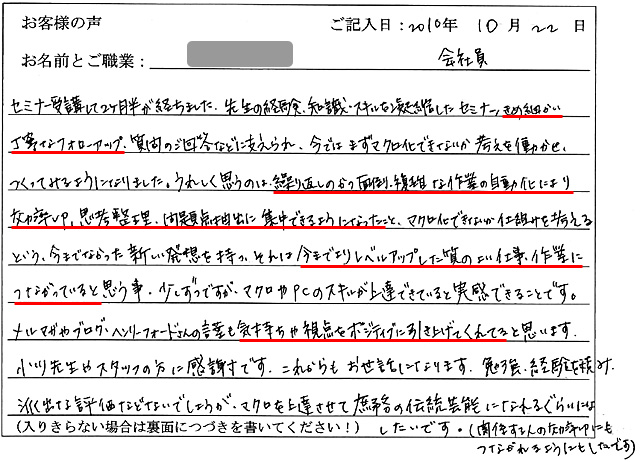 お客様の声
ご記入日:2010年 10月 22日
お名前とご職業: 会社員
セミナー受講して2ヶ月半が経ちました。先生の経験・知識・スキルを凝縮したセミナー、きめ細かい
丁寧なフォローアップ、質問のご回答などに支えられ、今ではまずマクロ化できないか考えを働かせ、
つくってみるようになりました。うれしく思うのは、繰り返しのかつ面倒・複雑な作業の自動化により
効率UP、思考整理、問題点抽出に集中できるようになったこと、マクロ化できないか仕組みを考える
という、今までなかった新しい発想を持つ、それは今までよりレベルアップした質のよい仕事・作業に
つながっていると思う事、少しずつですが、マクロやPCのスキルが上達できていると実感できることです。
メルマガやブログ、ヘンリーフォードさんの言葉も気持ちや視点をポジティブに引き上げてくれてると思います。
小川先生やスタッフの方に感謝です。これからもお世話になります。勉強、経験を積み、
派出な評価などないでしょうが、マクロを上達させて庶務の伝統芸能になれるぐらいには
(入りきらない場合は裏面につづきを書いてください!) したいです。(関係する人の効率UPにも
つながれるようにもしたいです)